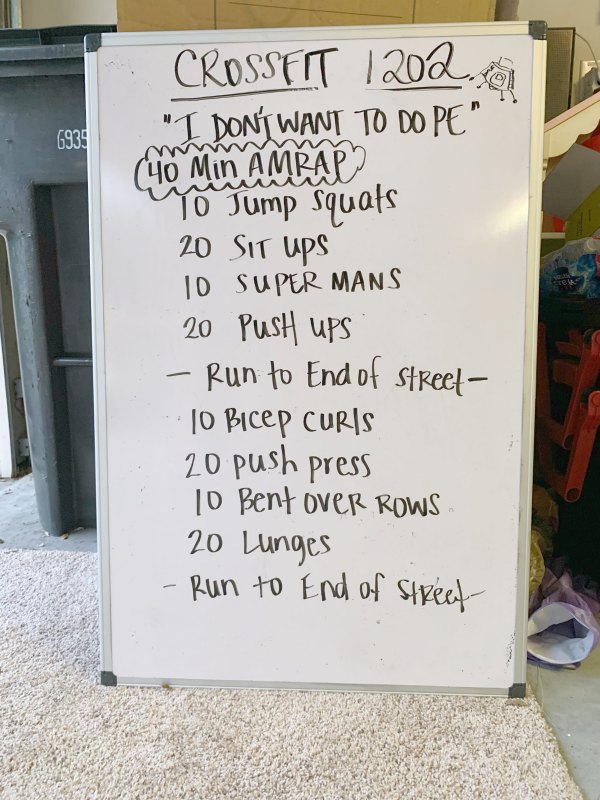 CROSSFIT 1202
"I DON'T WANT TO DO PE"
40 Min AMRAP
10 Jump Squats
20 SIT UPS
10 SUPER MANS
20 PUSH UPS
- Run to End of Street -
10 BICEP CURLS
20 push press
10 Bent over ROWS
20 Lunges
- Run to End of Street -
G935